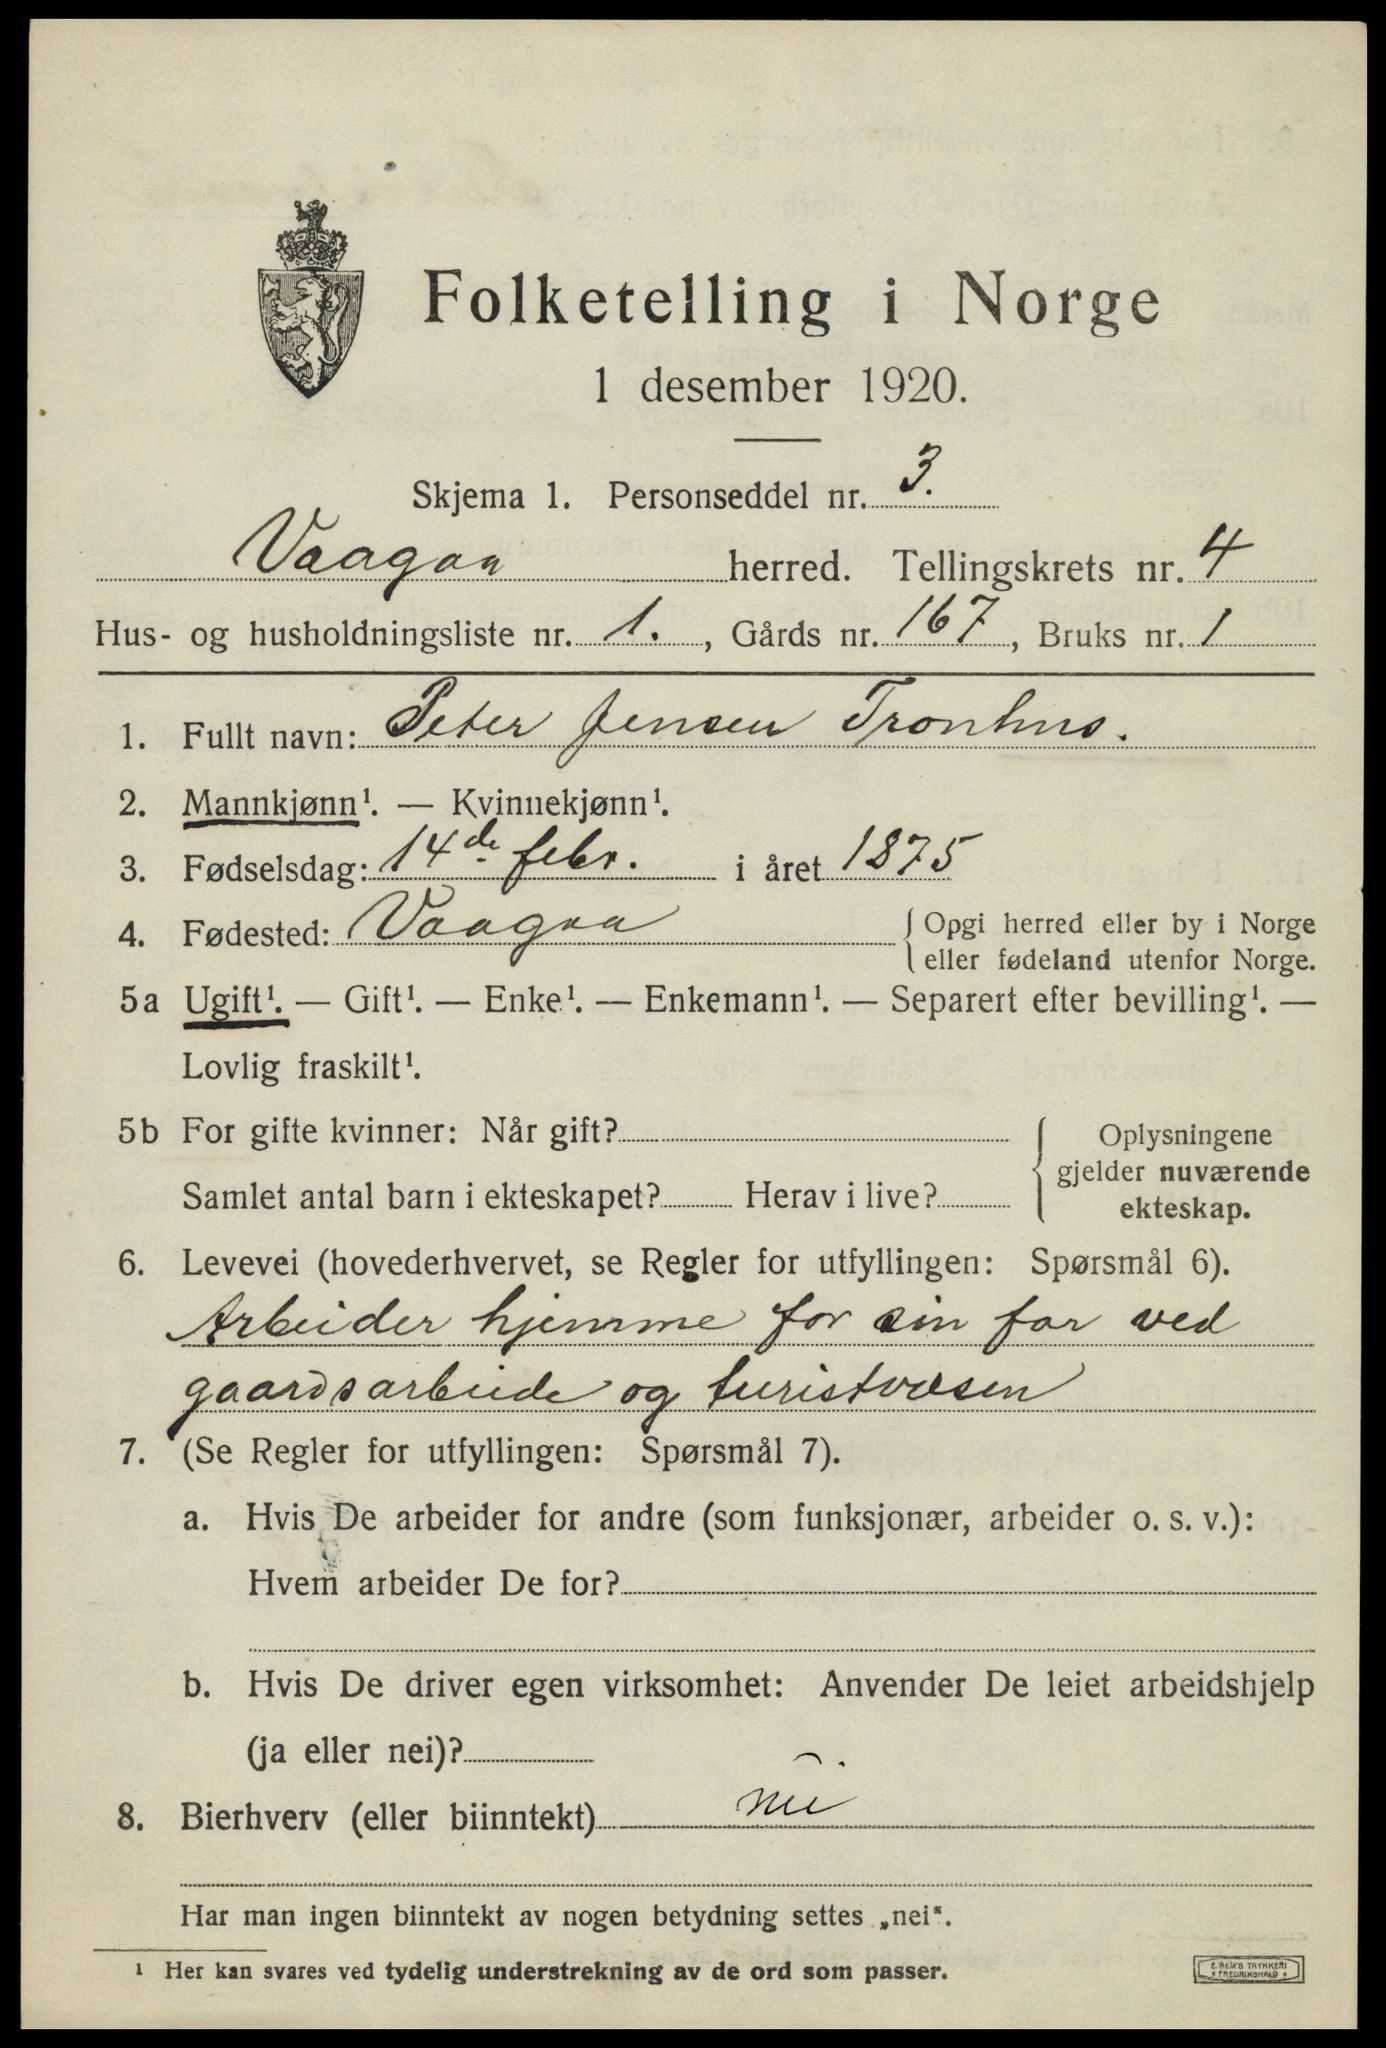 Folketelling i Norge
1 desember 1920.
Skjema 1. Personseddel nr. 3.
Vaagaa herred. Tellingskrets nr. 4
Hus- og husholdningsliste nr. 1. , Gårds nr. 167 , Bruks nr. 1
1. Fullt navn: Peter Jensen Tronhus.
2. Mannkjønn¹. — Kvinnekjønn¹.
3. Fødselsdag: 14de febr. i året 1875
4. Fødested: Vaagaa { Opgi herred eller by i Norge
eller fødeland utenfor Norge.
5a Ugift¹. — Gift¹. — Enke¹. — Enkemann¹. — Separert efter bevilling¹. —
Lovlig fraskilt¹.
5b For gifte kvinner: Når gift? { Oplysningene
gjelder nuværende
Samlet antal barn i ekteskapet? Herav i live? ekteskap.
6. Levevei (hovederhvervet, se Regler for utfyllingen: Spørsmål 6).
Arbeider hjemme for sin far ved
gaardsarbeide og turistvæsen
7. (Se Regler for utfyllingen: Spørsmål 7).
a. Hvis De arbeider for andre (som funksjonær, arbeider o. s. v.):
Hvem arbeider De for?
b. Hvis De driver egen virksomhet: Anvender De leiet arbeidshjelp
(ja eller nei)?
8. Bierhverv (eller biinntekt) nei
Har man ingen biinntekt av nogen betydning settes „nei“.
¹ Her kan svares ved tydelig understrekning av de ord som passer.
E. SEM'S TRYKKERI
* FREDRIKSHALD *